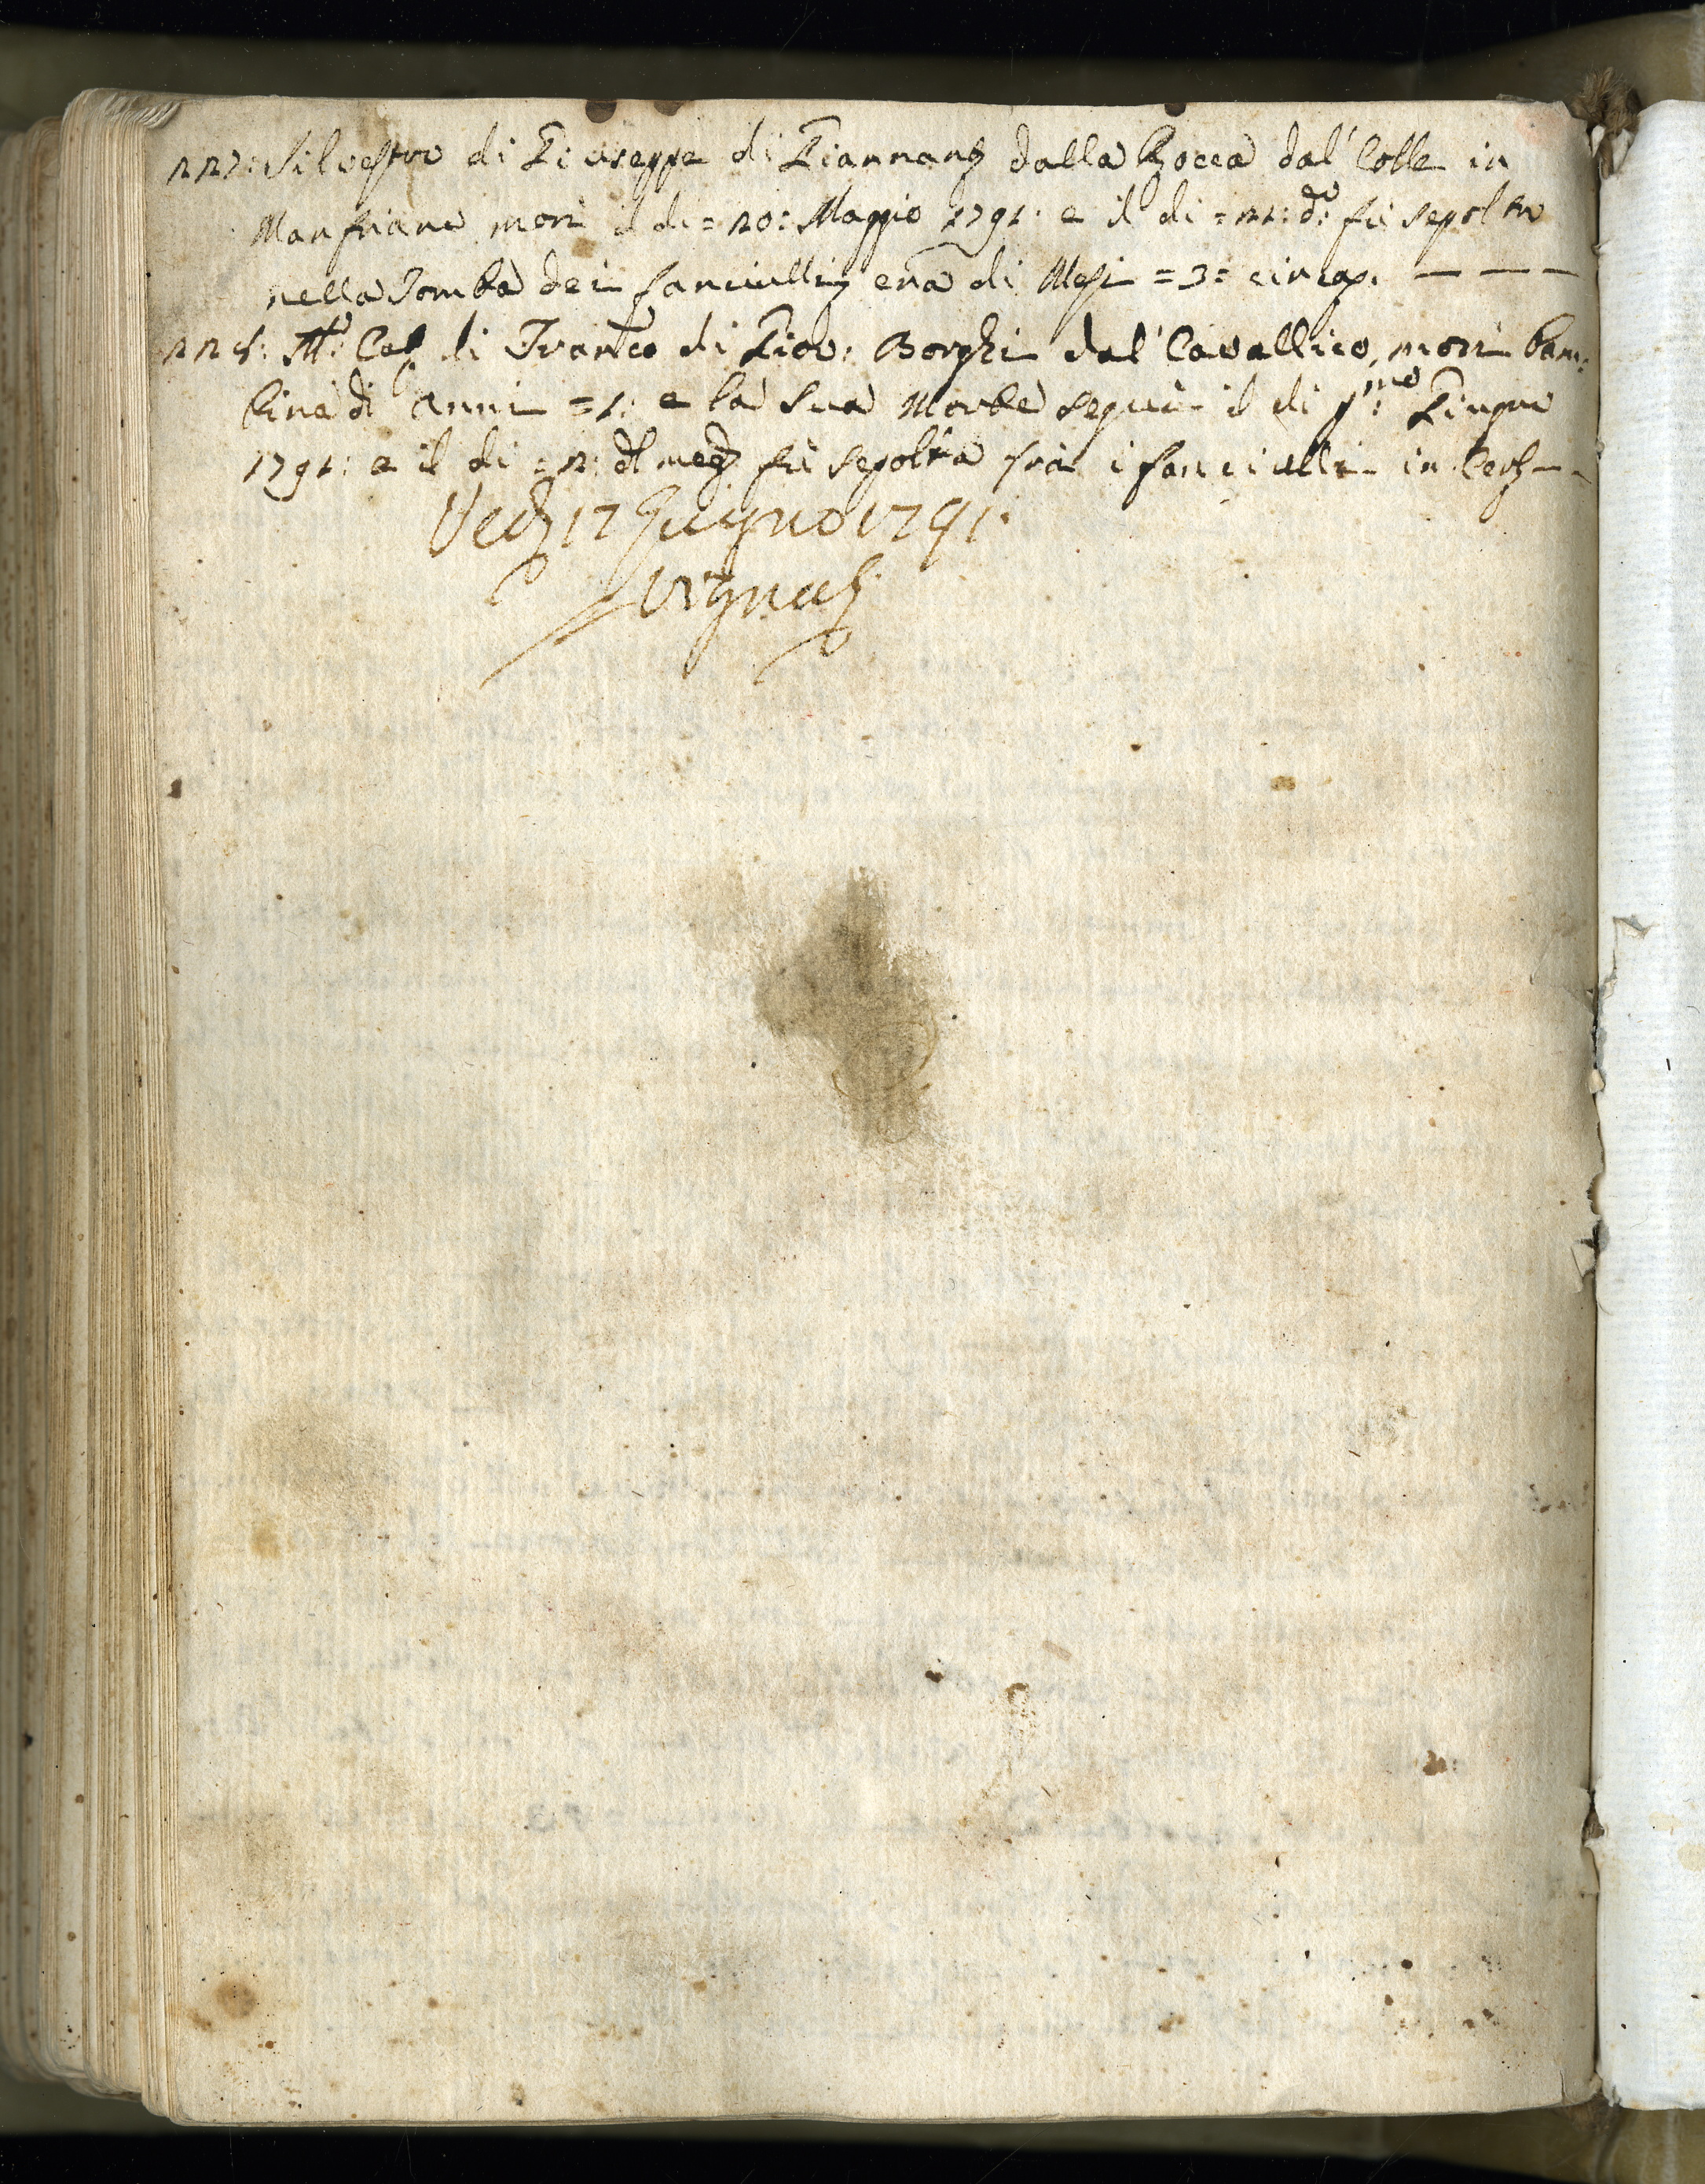 227: Silvestro di Giuseppe di Giannang dalla Rocca dal' Colle in
Manfriana mori il di = 20: Maggio 1791: e il di = 21: do: fù sepolto
nella Tomba dei fanciulli, era di Mesi = 3 = circa. — — —
228: Ma: Cat di Franco di Giov: Borghi dal' Cavallico, mori bam:
bina di Anni = 1: e la sua Morte seguì il di pmo: Giugno
1791: e il di = 2: dl med fù sepolta frà i fanciulli in
Ved 17 Giugno 1791.